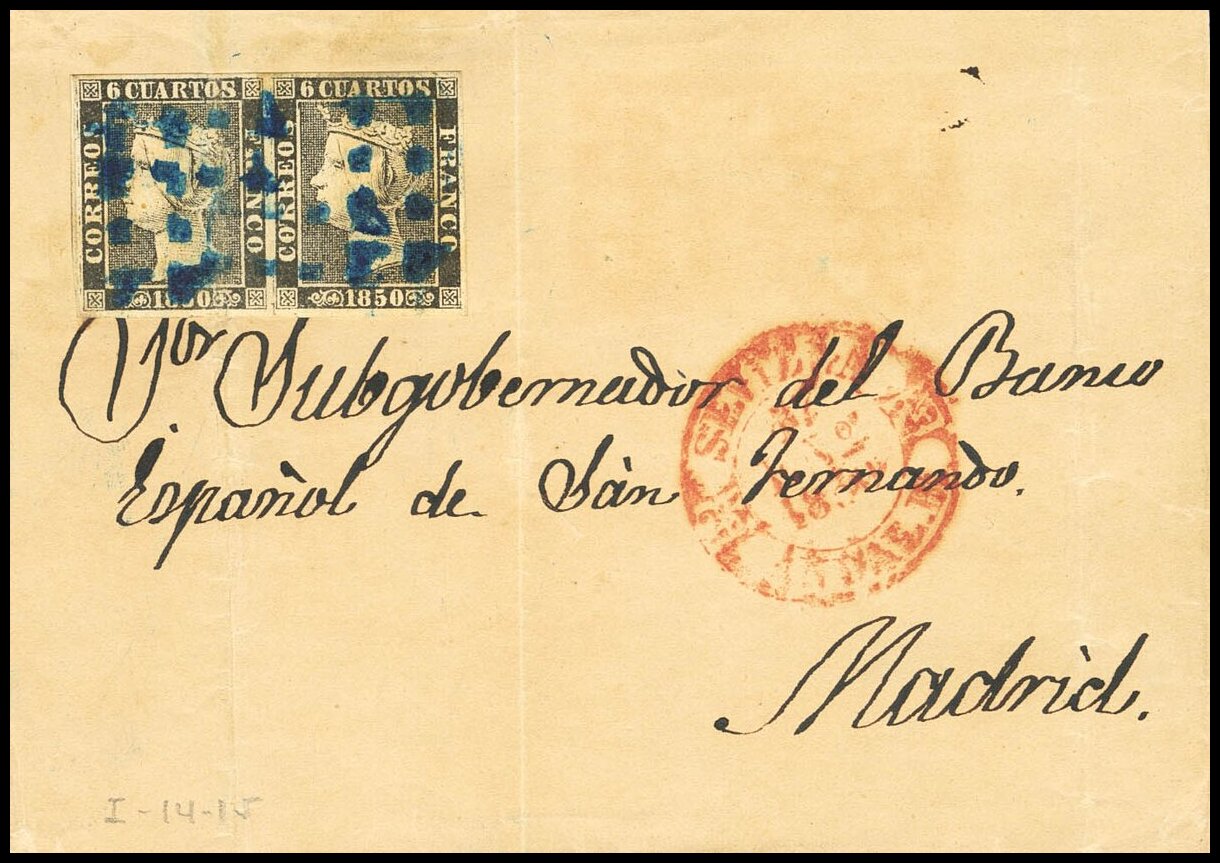 6 CUARTOS 6 CUARTOS
CORREOS FRANCO CORREOS FRANCO
1850 1850
Sor Subgobernador del Banco
Español de Sàn Fernando.
SEVILLA
Madrid.
I-14-15